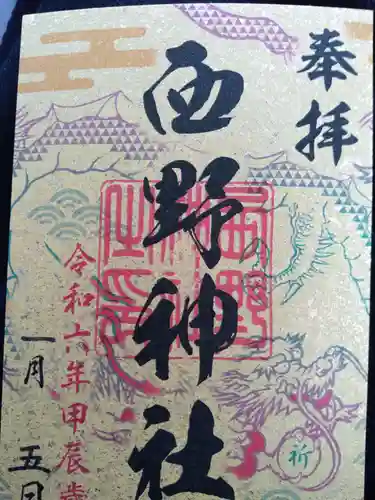 奉拝
西野神社
令和六年甲辰歳
一月 五日
祈